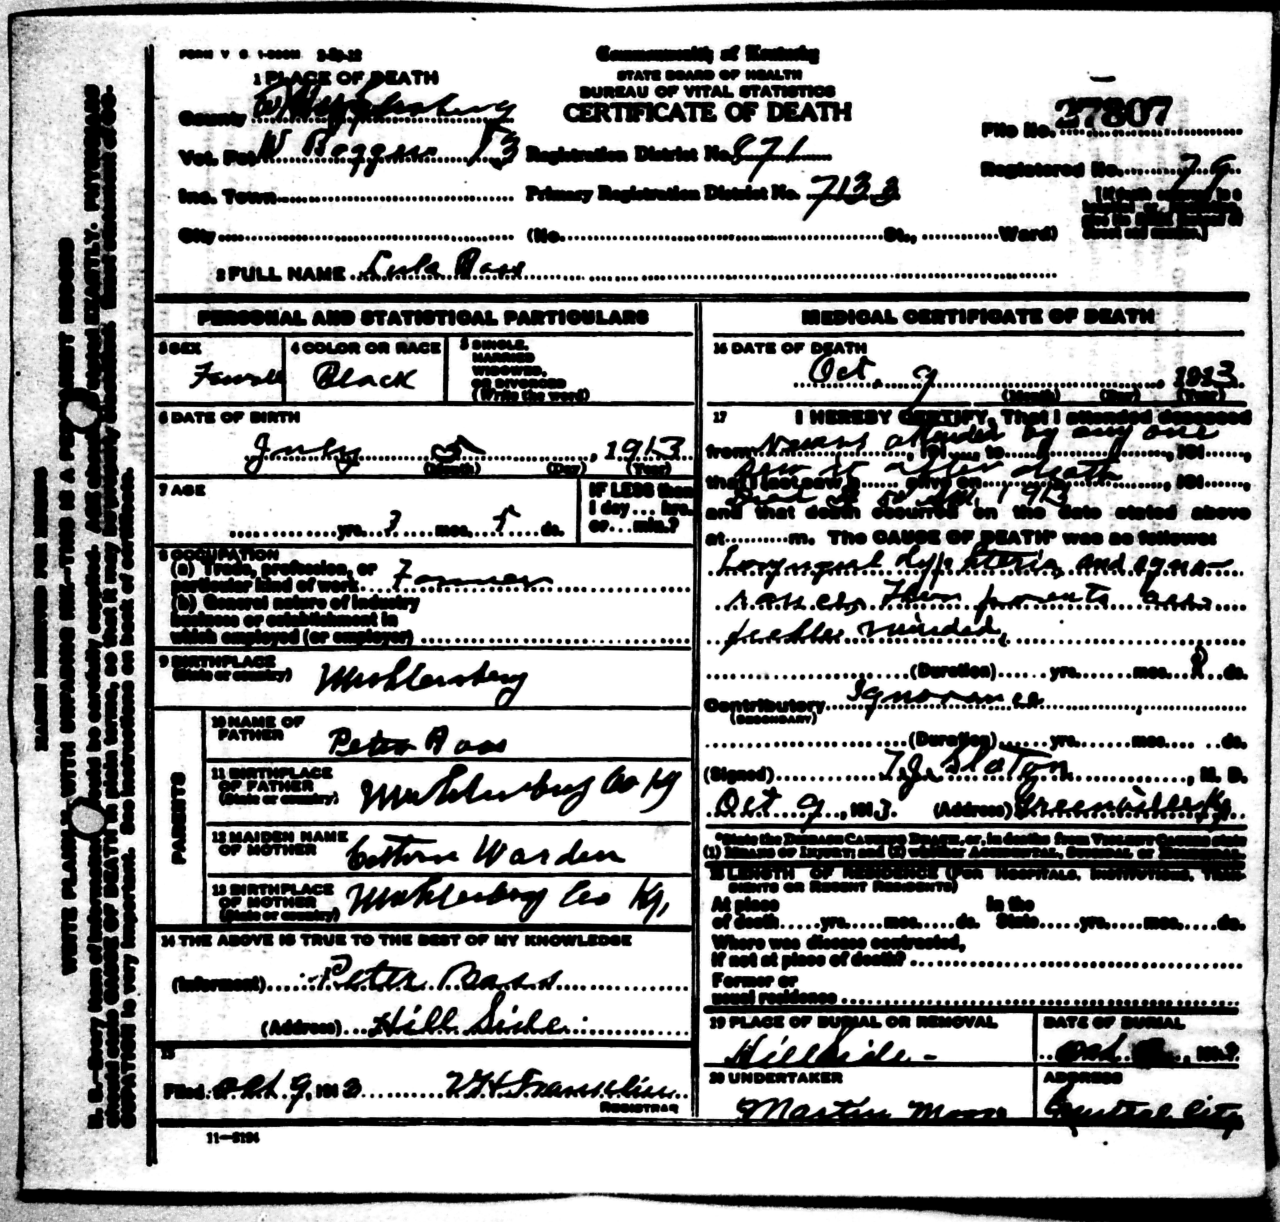 FORM V. S. 1-500M 2-29-12
Commonwealth of Kentucky
STATE BOARD OF HEALTH
BUREAU OF VITAL STATISTICS
CERTIFICATE OF DEATH
1 PLACE OF DEATH
County Muhlenberg
Vot. Pct W Boggess 13
Registration District No. 871
File No. 27807
Inc. Town
Primary Registration District No. 7133
Registered No. 79
City (No. St., Ward)
2 FULL NAME Lula Ross
PERSONAL AND STATISTICAL PARTICULARS
3 SEX Female
4 COLOR OR RACE Black
5 SINGLE, MARRIED WIDOWED, OR DIVORCED (Write the word)
6 DATE OF BIRTH
July 5, 1913
(Month) (Day) (Year)
7 AGE
yrs. 3 mos. 5 ds.
IF LESS than 1 day... hrs. or... min.?
8 OCCUPATION
(a) Trade, profession, or particular kind of work Farmer
(b) General nature of industry business or establishment in which employed (or employer)
9 BIRTHPLACE (State or country) Muhlenberg
PARENTS
10 NAME OF FATHER Peter Ross
11 BIRTHPLACE OF FATHER (State or country) Muhlenberg Co Ky
12 MAIDEN NAME OF MOTHER Warden
13 BIRTHPLACE OF MOTHER (State or country) Muhlenberg Co Ky,
14 THE ABOVE IS TRUE TO THE BEST OF MY KNOWLEDGE
(Informant) Peter Ross
(Address) Hill Side
15
Filed Oct 9, 1913 Franklin
REGISTRAR
11-5194
MEDICAL CERTIFICATE OF DEATH
16 DATE OF DEATH
Oct. 9, 1913
(Month) (Day) (Year)
17 I HEREBY CERTIFY, That I attended deceased
from never attended by any one, 191 to , 191 ,
that I last saw h alive on , 191 ,
saw it after death
1913
and that death occurred on the date stated above
at m. The CAUSE OF DEATH* was as follows:
Laryngeal Dyphtheria and igno-
rance, Their parents are
feeble minded,
(Duration) yrs. mos. ds.
Contributory Ignorance
(SECONDARY)
(Duration) yrs. mos. ds.
(Signed) T.J. Slaton, M. D.
Oct 9, 1913. (Address) Greenville Ky
*State the DISEASE CAUSING DEATH, or, in deaths from VIOLENT CAUSES state
(1) MEANS OF INJURY; and (2) whether ACCIDENTAL, SUICIDAL or HOMICIDAL.
18 LENGTH OF RESIDENCE (FOR HOSPITALS, INSTITUTIONS, TRAN-
SIENTS OR RECENT RESIDENTS)
At place In the
of death yrs. mos. ds. State yrs. mos. ds.
Where was disease contracted,
if not at place of death?
Former or
usual residence
19 PLACE OF BURIAL OR REMOVAL
Hillside -
DATE OF BURIAL
Oct
20 UNDERTAKER
Martin Moore
ADDRESS
Central City
MARGIN RESERVED FOR BINDING
WRITE PLAINLY WITH UNFADING INK—THIS IS A PERMANENT RECORD